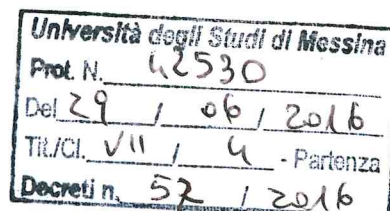 Università degli Studi di Messina
Prot. N. 42530
Del 29 / 06 / 2016
Tit./Cl. VII / 4 - Partenza
Decreti n. 57 / 2016